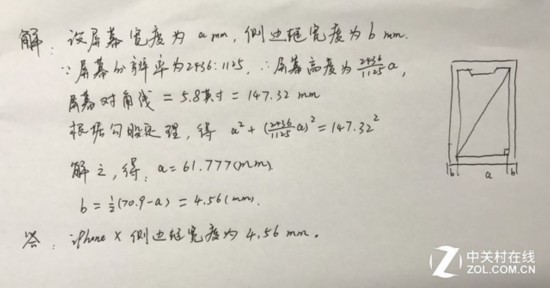 解：设屏幕宽度为 a mm，侧边框宽度为 b mm.
∵屏幕分辨率为2436:1125，∴屏幕高度为 2436/1125 a，
屏幕对角线 = 5.8英寸 = 147.32 mm
根据勾股定理，得 a² + (2436/1125 a)² = 147.32²
解之，得：a = 61.777(mm)
b = 1/2(70.9-a) = 4.56(mm).
答：iPhone X 侧边框宽度为 4.56 mm.
b a b
中关村在线
ZOL.COM.CN